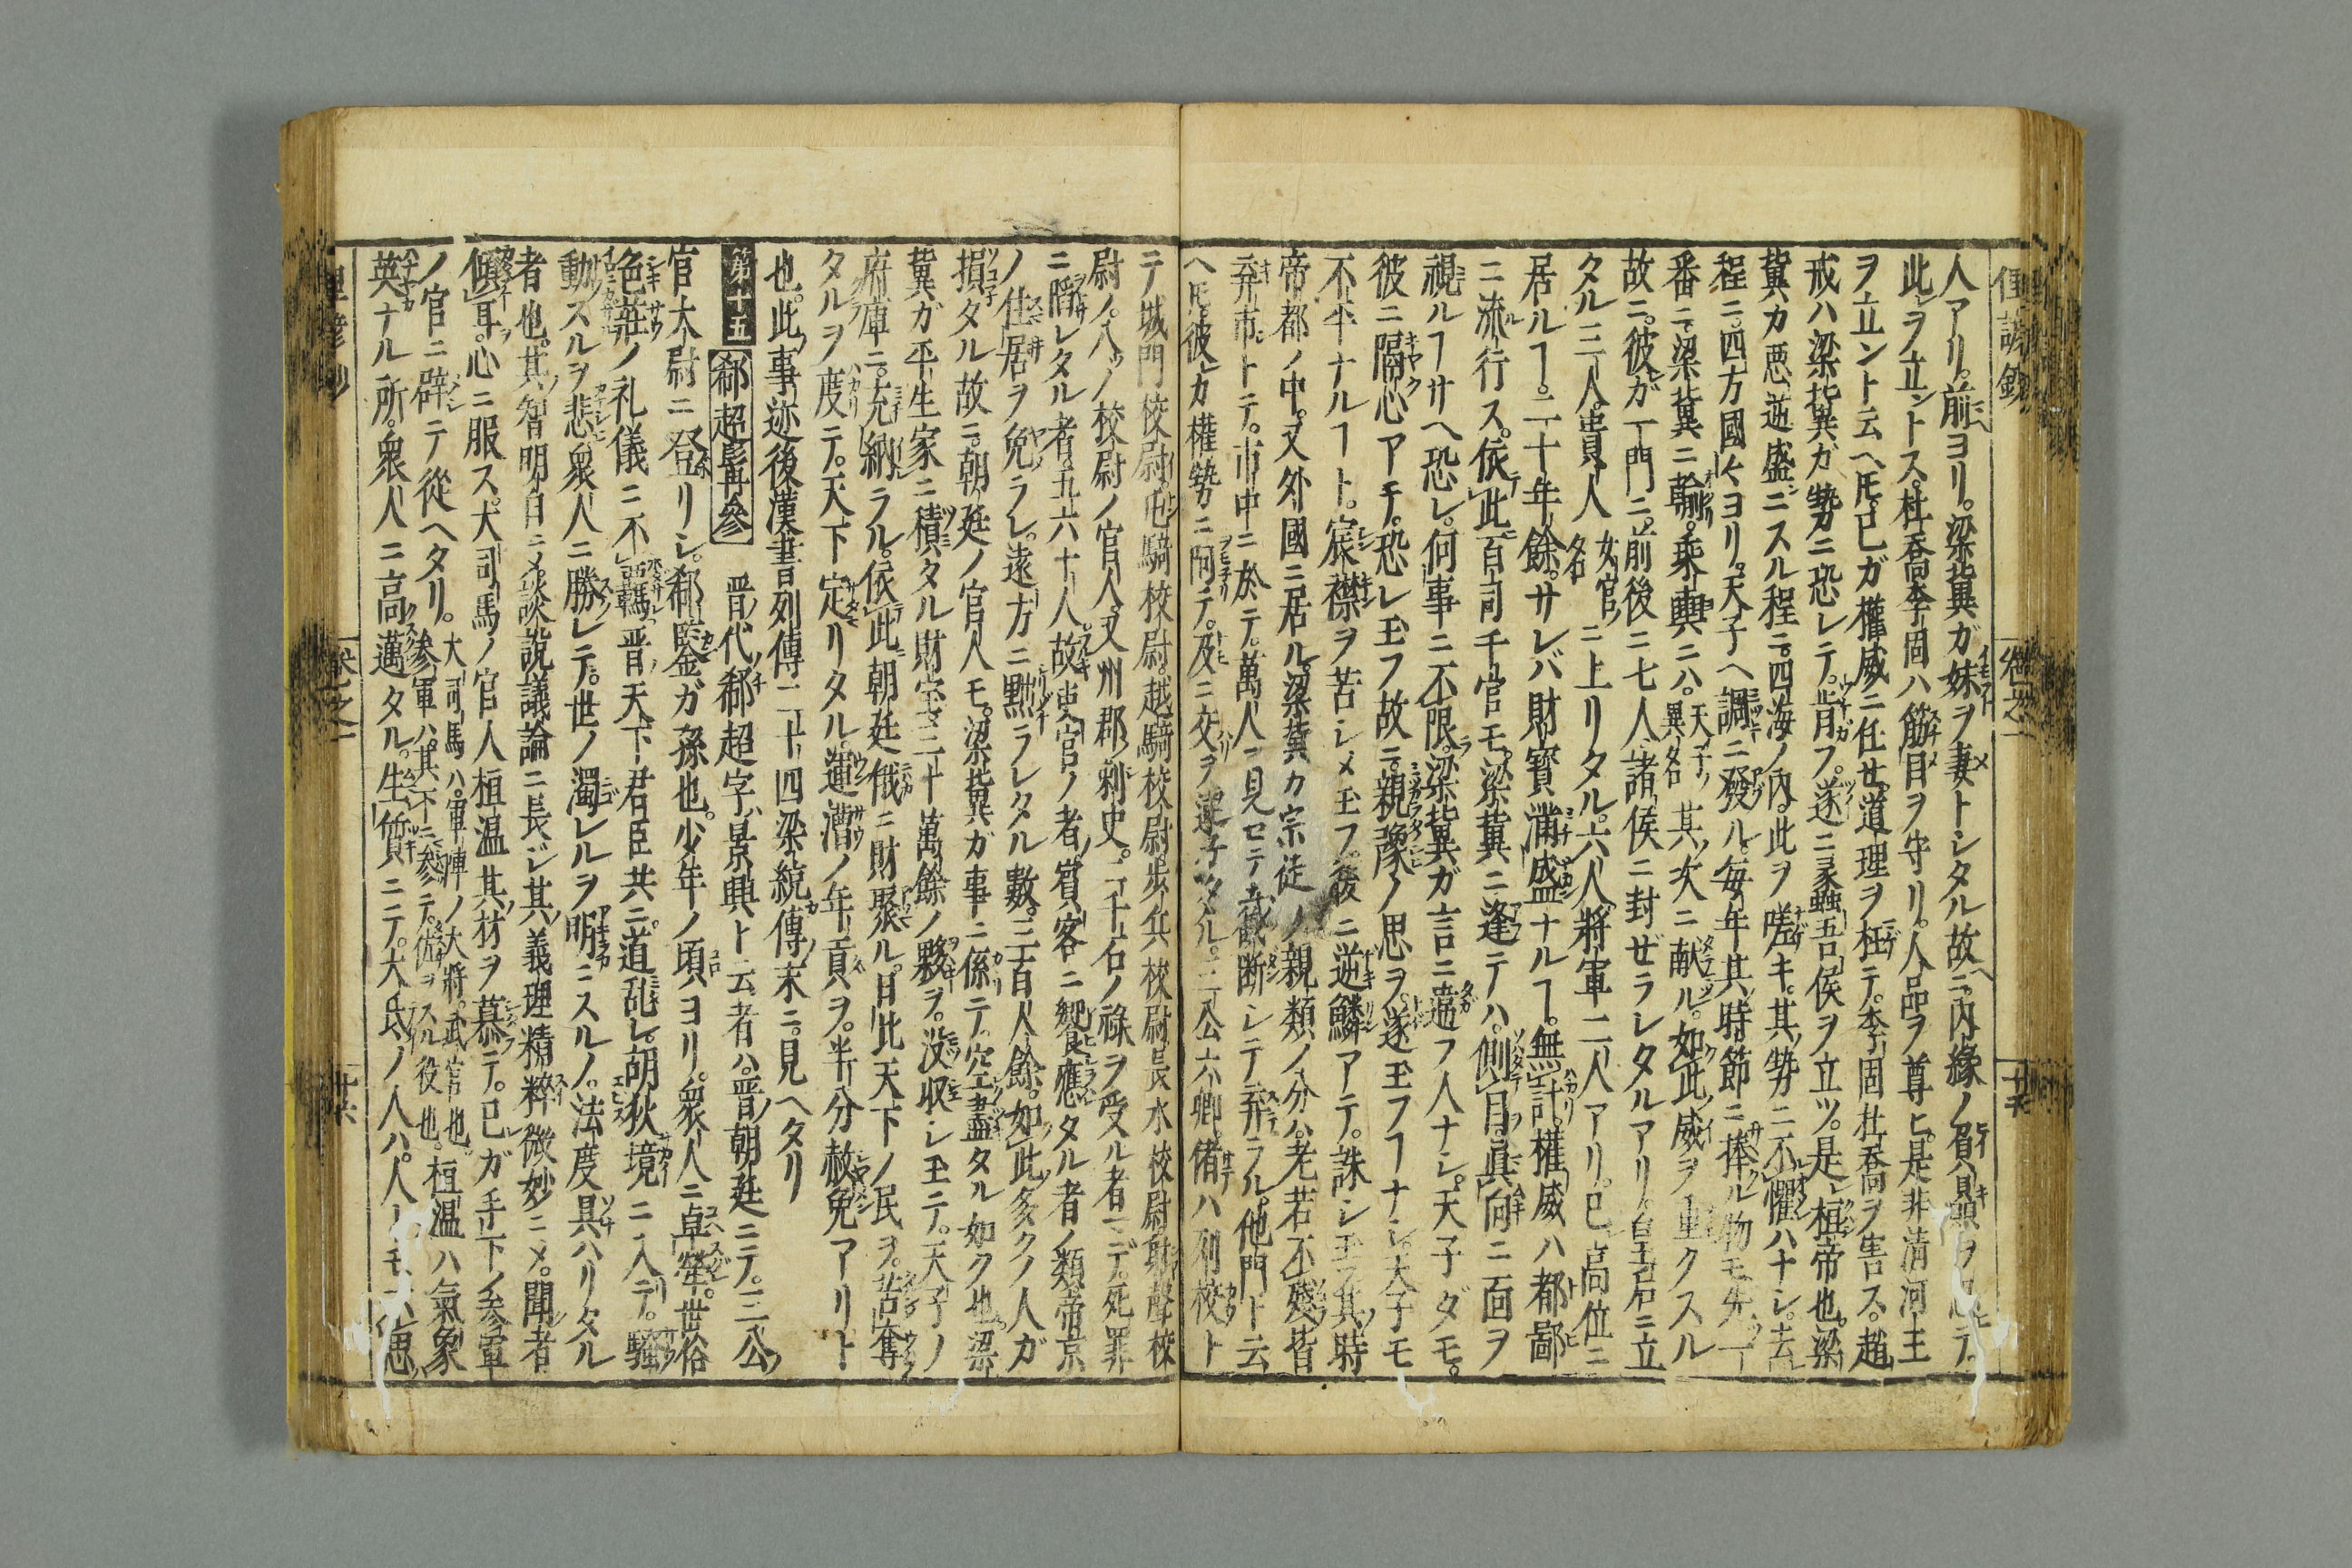 人アリ。前ヨリ。梁冀ガ妹ヲ妻トシタル故ニ。内縁ノ贔屓ヲ テ。
此レヲ立ントス。杜喬李固ハ筋目ヲ守リ。人品ヲ尊ヒ。是非清河王
ヲ立ント云ヘ𪜈。已ガ權威ニ任せ。道理ヲ枉テ。李固杜喬ヲ害ス。趙
戒ハ梁冀ガ勢力ニ恐レテ。肯フ。遂ニ蠡吾侯ヲ立ツ。是レ桓帝也。梁
冀カ惡逆盛ニスル程ニ。四海ノ内。此ヲ嗟キ。其勢ニ不懼ハナシ。去
程ニ。四方國々ヨリ。天子ヘ調ニ發ル。毎年其時節ニ捧ル物モ先一
番ニ梁冀ニ輸。乘輿ニハ。天子ノ異名其ノ次ニ献ル。如此威ヲ重クスル
故ニ。彼ガ一門ニ。前後ニ七人諸侯ニ封ゼラレタルアリ。皇后ニ立
タル三人。貴人女官ノ名ニ上リタル。六人將軍二人アリ。已高位ニ
居ルヿ。二十年餘。サレバ財寶滿盛ナルヿ。無計。權威ハ都鄙
ニ流行ス。依此百司千官モ。梁冀ニ逢テハ。側目。眞向ニ面ヲ
視ルヿサヘ恐レ。何事ニ不限。梁冀ガ言ニ違フ人ナシ。天子ダモ。
彼ニ隔心アテ。恐レ玉フ故ニ。親豫ノ思ヲ。遂玉フヿナシ。天子モ
不平ナルヿト。宸襟ヲ苦シメ玉フ。後ニ逆鱗アテ。誅シ玉フ其時
帝都ノ中。又外國ニ居ル。梁冀カ宗徒ノ親類ノ分ハ。老若不殘皆
弃市トテ。市中ニ於テ。萬人ニ見セテ截断シテ弃ラル。他門ト云
ヘ𪜈。彼カ權勢ニ阿テ。及ニ交ヲ タル。三公六卿。偖ハ列校ト
テ城門校尉。屯騎校尉。越騎校尉。歩兵校尉長水校尉射聲校
尉ノ。八ノ校尉ノ官人。又州郡ノ剌史。二千石ノ祿ヲ受ル者マデ。死罪
ニ隮レタル者。五六十人。故吏官ノ者賓客ニ饗應タル者ノ類帝京
ノ住居ヲ免ラレ。遠方ニ黜ラレタル數。三百人餘。如此多クノ人ガ
損タル故ニ。朝廷ノ官人モ。梁冀ガ事ニ係テ。空盡タル如ク也。梁
冀ガ平生家ニ積タル財宝三十萬餘ノ夥ヲ。没収シ玉テ。天子ノ
府庫ニ。充納ラル。依此朝廷俄ニ財聚ル。日此天下ノ民ヲ。苦奪
タルヲ度テ。天下定リタル。運漕ノ年貢ヲ。半分赦免アリト
也。此事迹後漢書列傳二十四梁統傳ノ末ニ。見ヘタリ
第十五 郗超髯參 晋ノ代郗超字ハ景興ト云者ハ。晋ノ朝廷ニテ。三公ノ
官大尉ニ登リシ。郗鑒ガ孫也。少年ノ頃ヨリ。衆人ニ卓犖。世俗
色荘ノ礼儀ニ不羈。晋ノ天下君臣共ニ。道乱レ。胡狄境ニ入テ。騒
動スルヲ悲。衆人ニ勝レテ。世ノ濁レルヲ明ニスルノ。法度具ハリタル
者也。其智明白ニメ。談説議論ニ長ジ其ノ義理精粹微妙ニメ。聞者
傾耳。心ニ服ス。大司馬ノ官人桓温其ノ材ヲ慕テ。已ガ手下ノ参軍
ノ官ニ辟テ從ヘタリ。大司馬ハ。軍陣ノ大將。武官也。参軍ハ。其下ニ参テ。佐ヲスル役也。桓温ハ氣象
英ナル所。衆人ニ高邁タル。生質ニテ。大氐ノ人ハ。人トモ不思